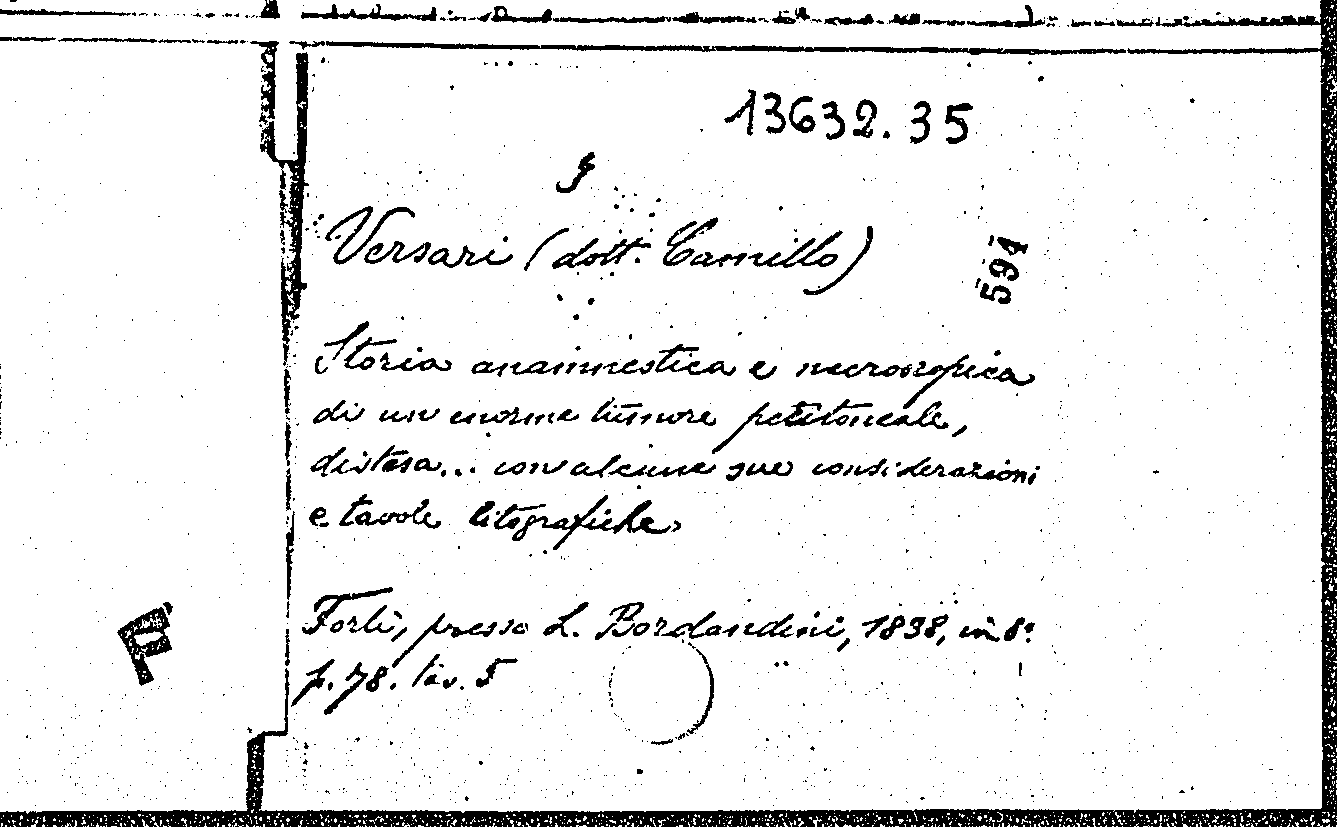 13632.35
Versari (dott. Camillo)
594
Storia anamnestica e necroscopica
di un enorme tumore peritoneale,
distesa... con alcune sue considerazioni
e tavole litografiche
Forlì, presso L. Bordandini, 1838, in 8°.
p. 78. tav. 5
F